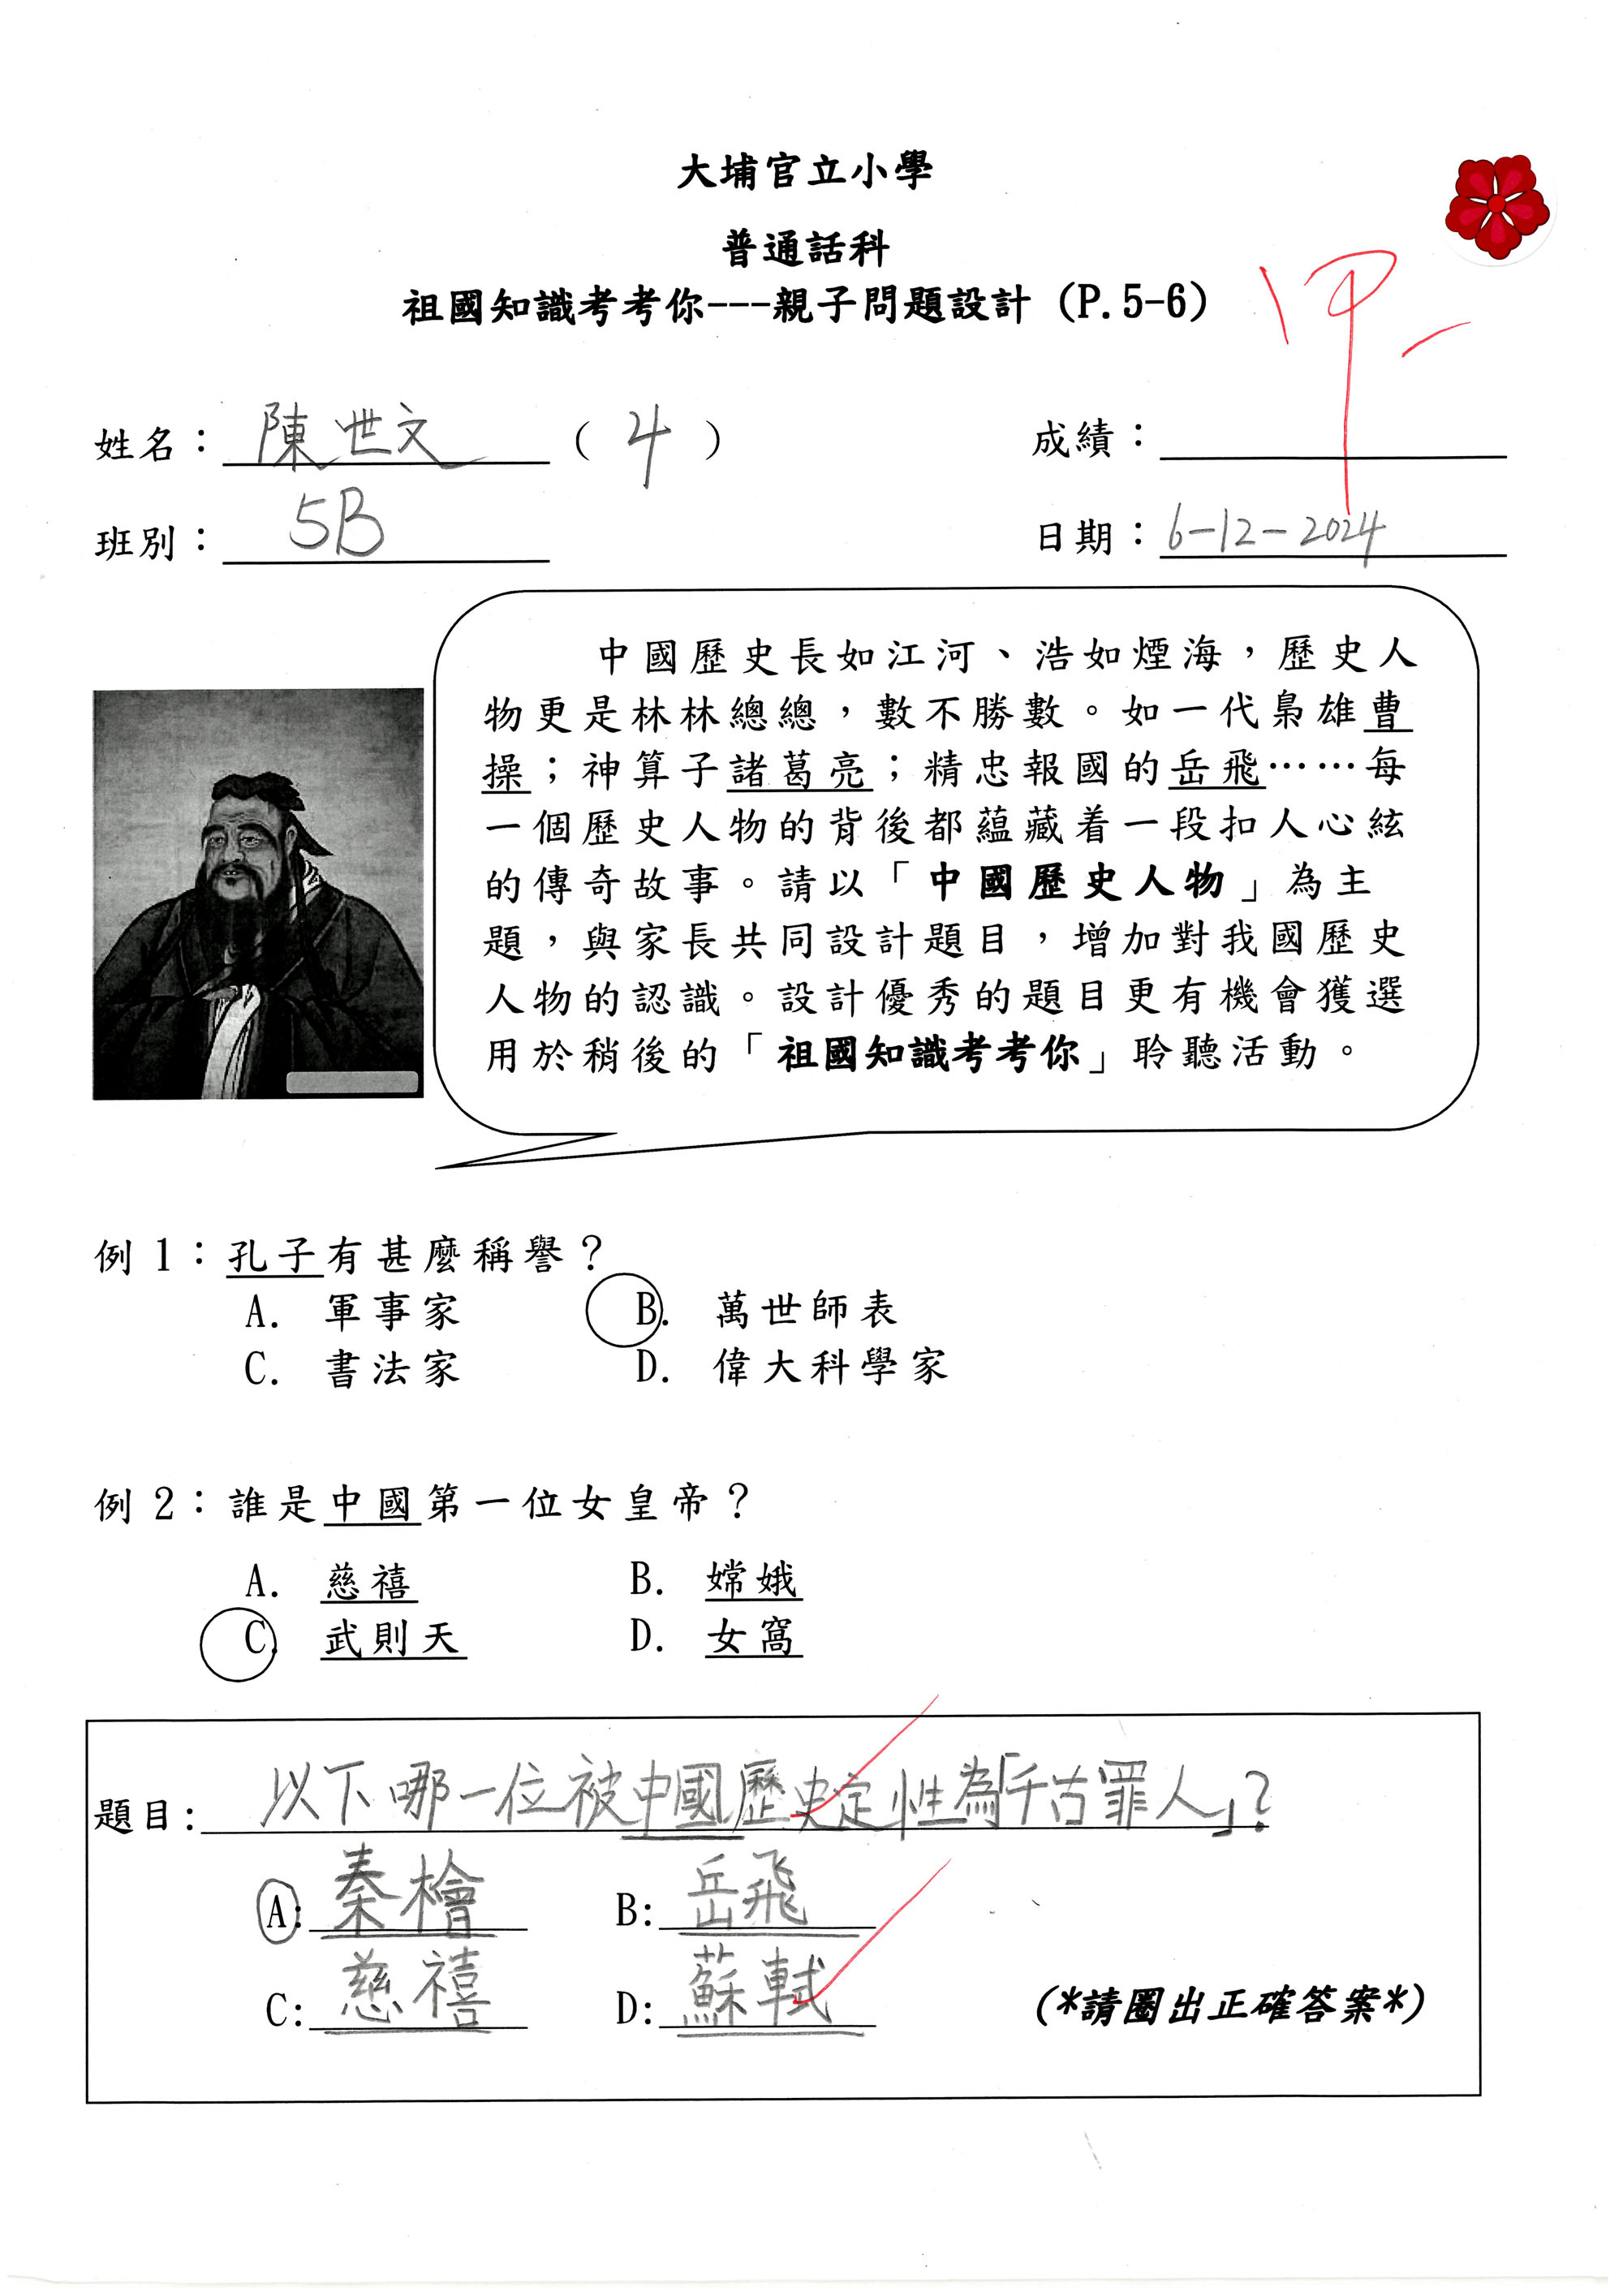 大埔官立小學
普通話科
祖國知識考考你---親子問題設計 (P.5-6)
甲-
姓名：陳世文 （ 4 ） 成績：
班別：5B 日期：6-12-2024
中國歷史長如江河、浩如煙海，歷史人
物更是林林總總，數不勝數。如一代梟雄曹
操；神算子諸葛亮；精忠報國的岳飛……每
一個歷史人物的背後都蘊藏着一段扣人心絃
的傳奇故事。請以「中國歷史人物」為主
題，與家長共同設計題目，增加對我國歷史
人物的認識。設計優秀的題目更有機會獲選
用於稍後的「祖國知識考考你」聆聽活動。
例 1：孔子有甚麼稱譽？
A. 軍事家 B. 萬世師表
C. 書法家 D. 偉大科學家
例 2：誰是中國第一位女皇帝？
A. 慈禧 B. 嫦娥
C. 武則天 D. 女窩
題目: 以下哪一位被中國歷史定性為「千古罪人」?
A: 秦檜 B: 岳飛
C: 慈禧 D: 蘇軾
(*請圈出正確答案*)